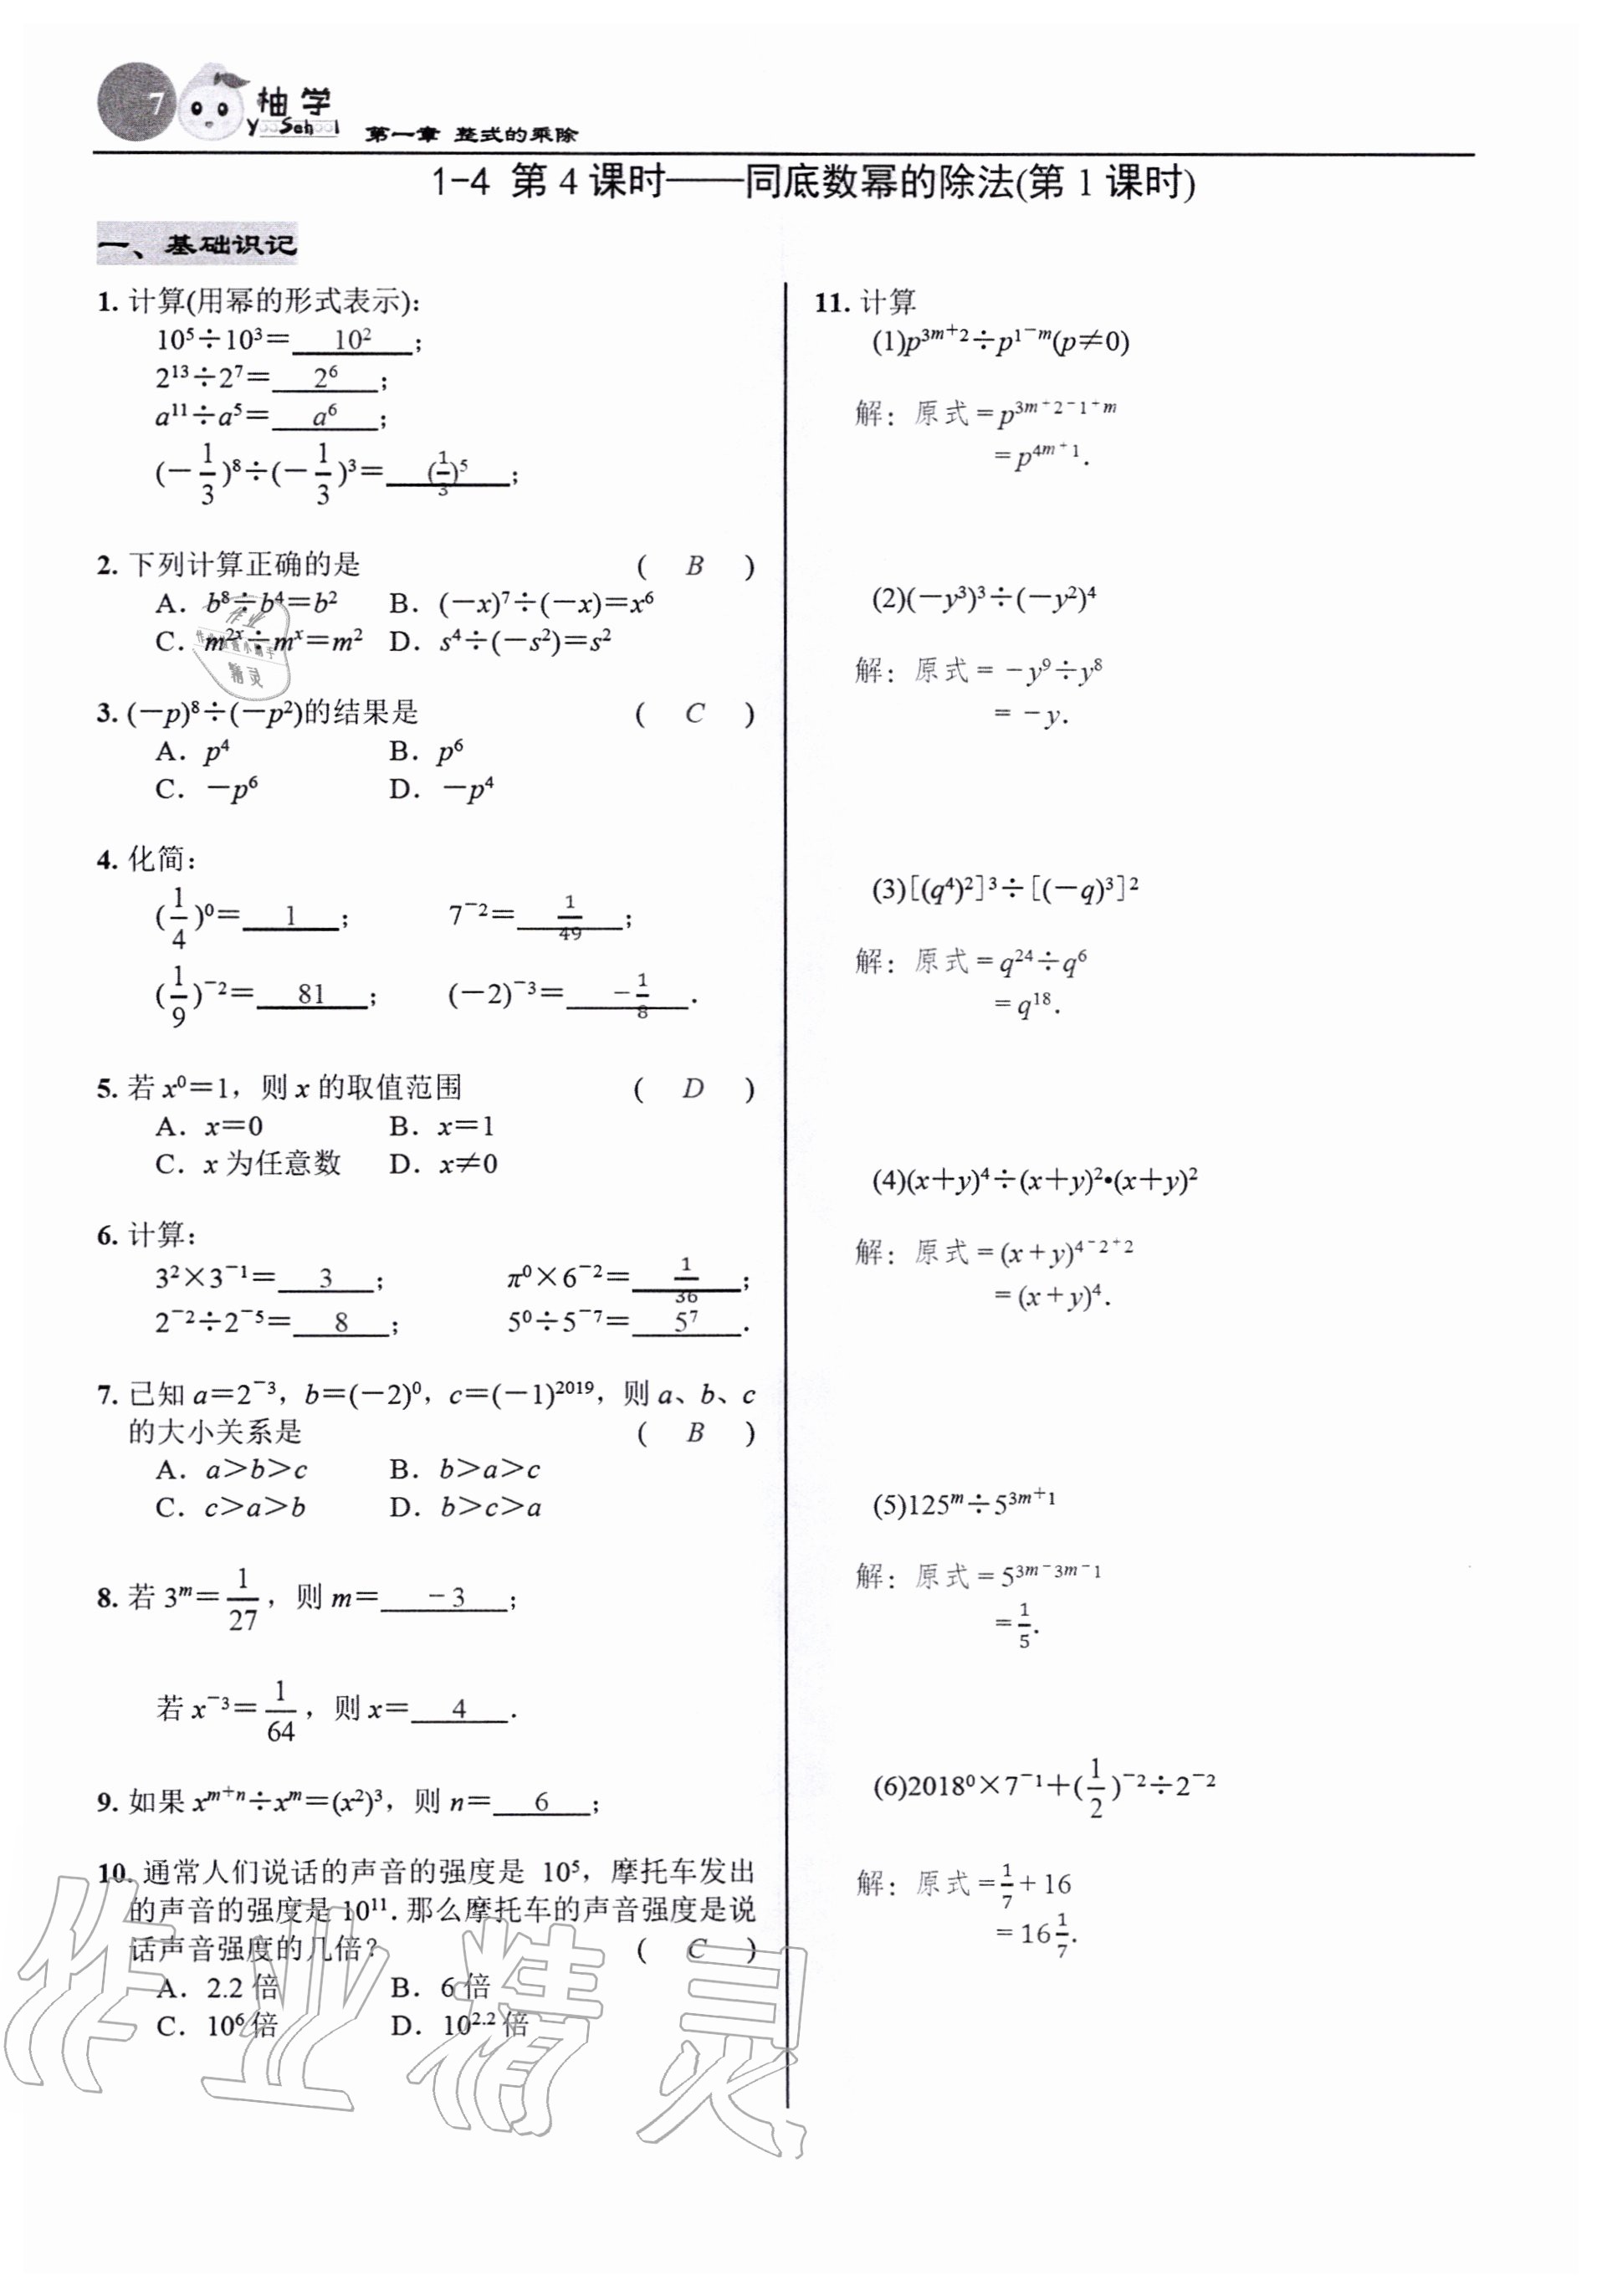 7
柚学
YooSchool
第一章 整式的乘除
1-4 第4课时——同底数幂的除法(第1课时)
一、基础识记
1. 计算(用幂的形式表示)：
10⁵÷10³=10²；
2¹³÷2⁷=2⁶；
a¹¹÷a⁵=a⁶；
(－1/3)⁸÷(－1/3)³=(1/3)⁵；
2. 下列计算正确的是 ( B )
A．b⁸÷b⁴=b² B．(－x)⁷÷(－x)=x⁶
C．m²ˣ÷mˣ=m² D．s⁴÷(－s²)=s²
3. (－p)⁸÷(－p²)的结果是 ( C )
A．p⁴ B．p⁶
C．－p⁶ D．－p⁴
4. 化简：
(1/4)⁰=1； 7⁻²=1/49；
(1/9)⁻²=81； (－2)⁻³=－1/8．
5. 若 x⁰=1，则 x 的取值范围 ( D )
A．x=0 B．x=1
C．x 为任意数 D．x≠0
6. 计算：
3²×3⁻¹=3； π⁰×6⁻²=1/36；
2⁻²÷2⁻⁵=8； 5⁰÷5⁻⁷=5⁷．
7. 已知 a=2⁻³，b=(－2)⁰，c=(－1)²⁰¹⁹，则 a、b、c
的大小关系是 ( B )
A．a>b>c B．b>a>c
C．c>a>b D．b>c>a
8. 若 3ᵐ=1/27，则 m=－3；
若 x⁻³=1/64，则 x=4．
9. 如果 xᵐ⁺ⁿ÷xᵐ=(x²)³，则 n=6；
10. 通常人们说话的声音的强度是 10⁵，摩托车发出
的声音的强度是 10¹¹．那么摩托车的声音强度是说
话声音强度的几倍？ ( C )
A．2.2 倍 B．6 倍
C．10⁶ 倍 D．10²·² 倍
11. 计算
(1)p³ᵐ⁺²÷p¹⁻ᵐ(p≠0)
解：原式=p³ᵐ⁺²⁻¹⁺ᵐ
=p⁴ᵐ⁺¹．
(2)(－y³)³÷(－y²)⁴
解：原式=－y⁹÷y⁸
=－y．
(3)[(q⁴)²]³÷[(－q)³]²
解：原式=q²⁴÷q⁶
=q¹⁸．
(4)(x＋y)⁴÷(x＋y)²•(x＋y)²
解：原式=(x＋y)⁴⁻²⁺²
=(x＋y)⁴．
(5)125ᵐ÷5³ᵐ⁺¹
解：原式=5³ᵐ⁻³ᵐ⁻¹
=1/5．
(6)2018⁰×7⁻¹＋(1/2)⁻²÷2⁻²
解：原式=1/7＋16
=16 1/7．
作业精灵